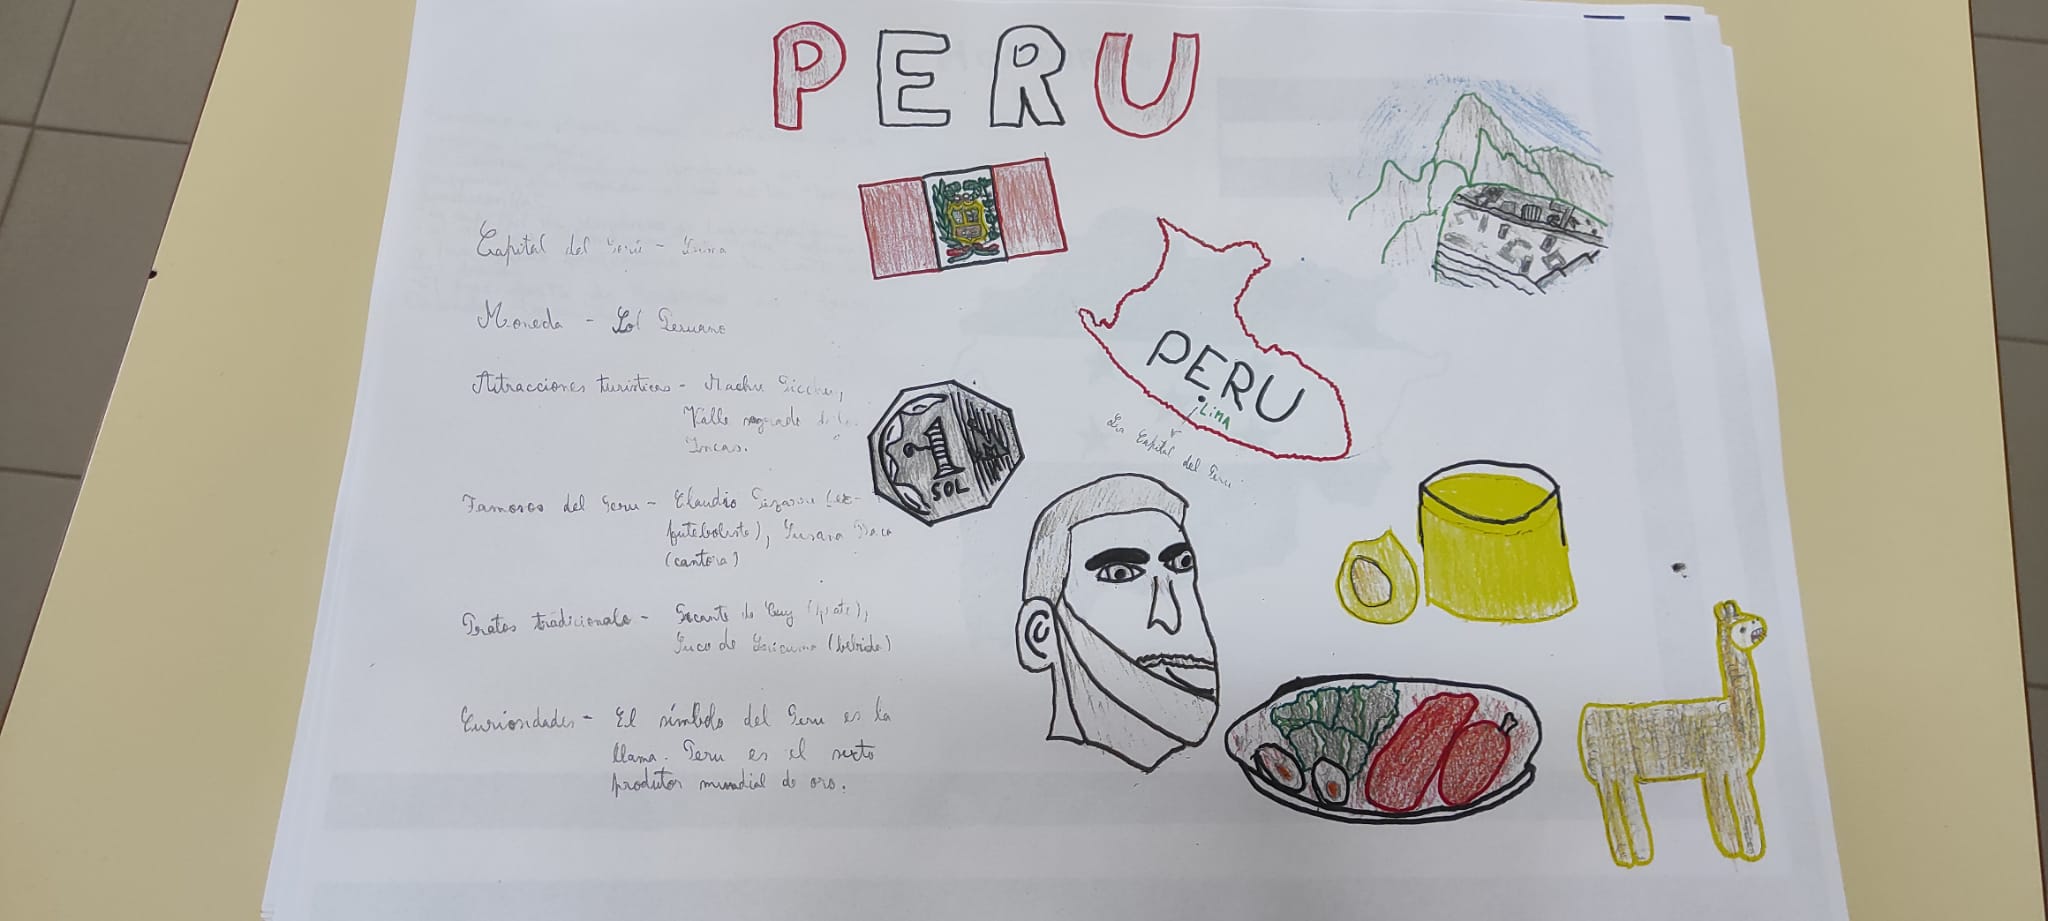 PERU
Capital del Perú - Lima
Moneda - Sol Peruano
Attracciones turísticas - Machu Picchu,
Valle sagrado de los
Incas.
Famosos del Peru - Claudio Pizarro (ex-
futebolista), Susana Baca
(cantora)
Pratos tradicionals - Picante de Cuy (prato),
Suco de Lúcuma (bebida)
Curiosidades - El símbolo del Peru es la
llama. Peru es el sexto
produtor mundial de oro.
1
SOL
PERU
LIMA
La Capital del Peru